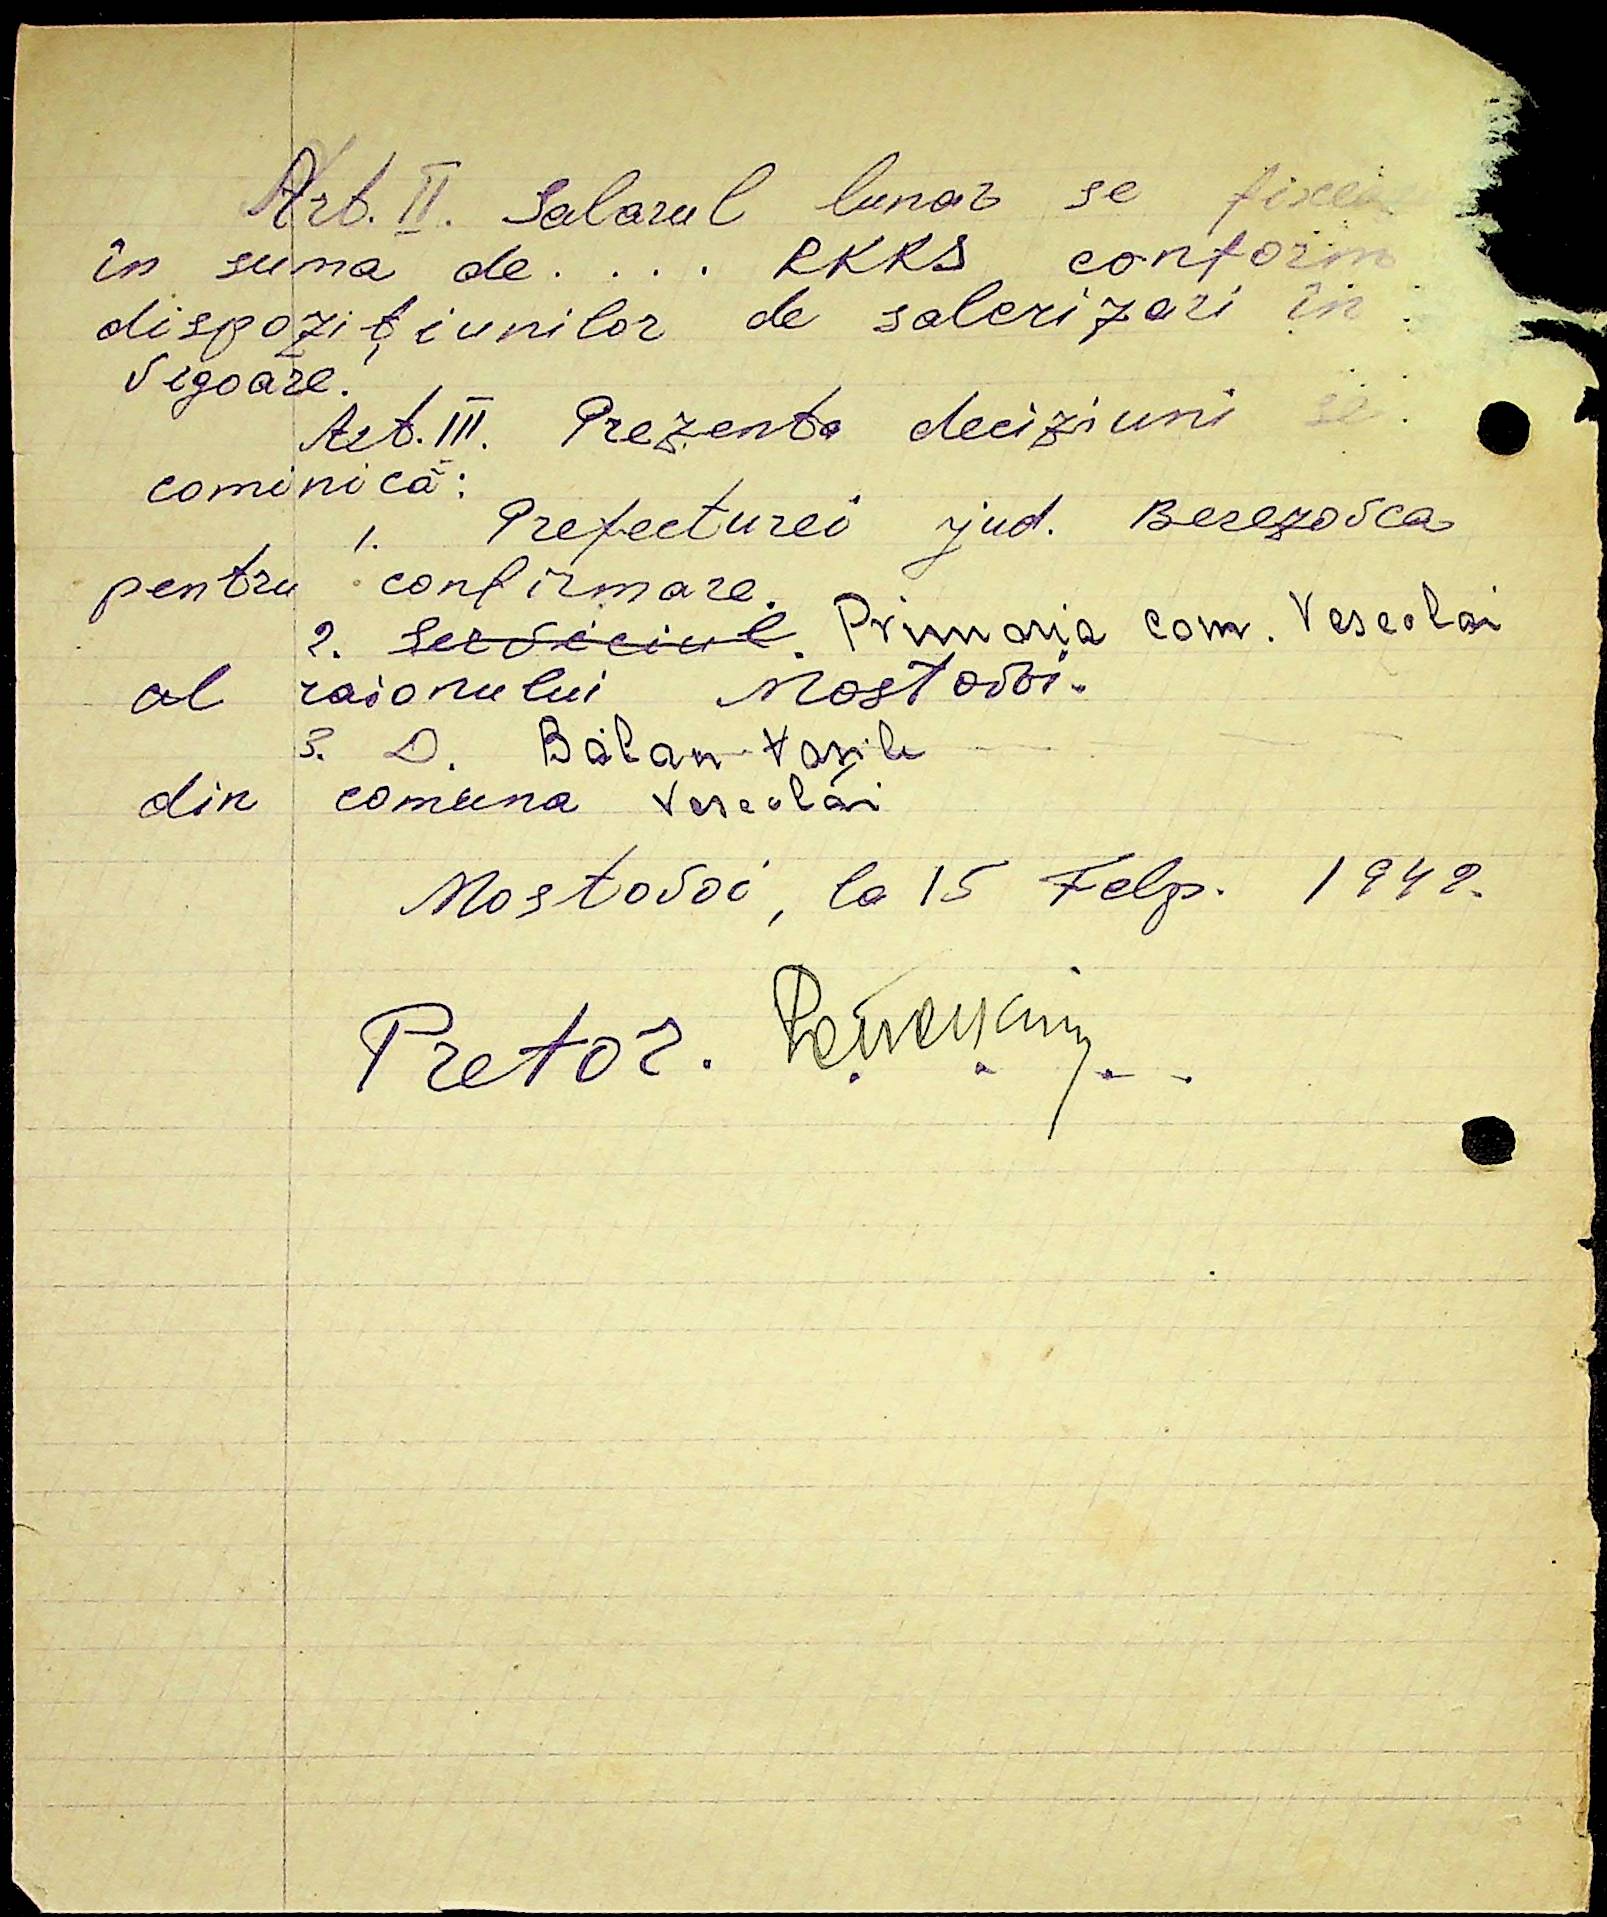 Art. II. Salarul lunar se fixea
în suma de . . . . RKKS conform
dispozițiunilor de salerizari în
vigoare.
Art. III. Prezenta deciziuni se
cominică:
1. Prefecturei jud. Berezovca
pentru confirmare.
2. Serviciul. Primaria com. Veseolai
al raionului Mostovoi.
3. D. Bălan Vasile
din comuna Veseolai
Mostovoi, la 15 Febr. 1942.
Pretor.